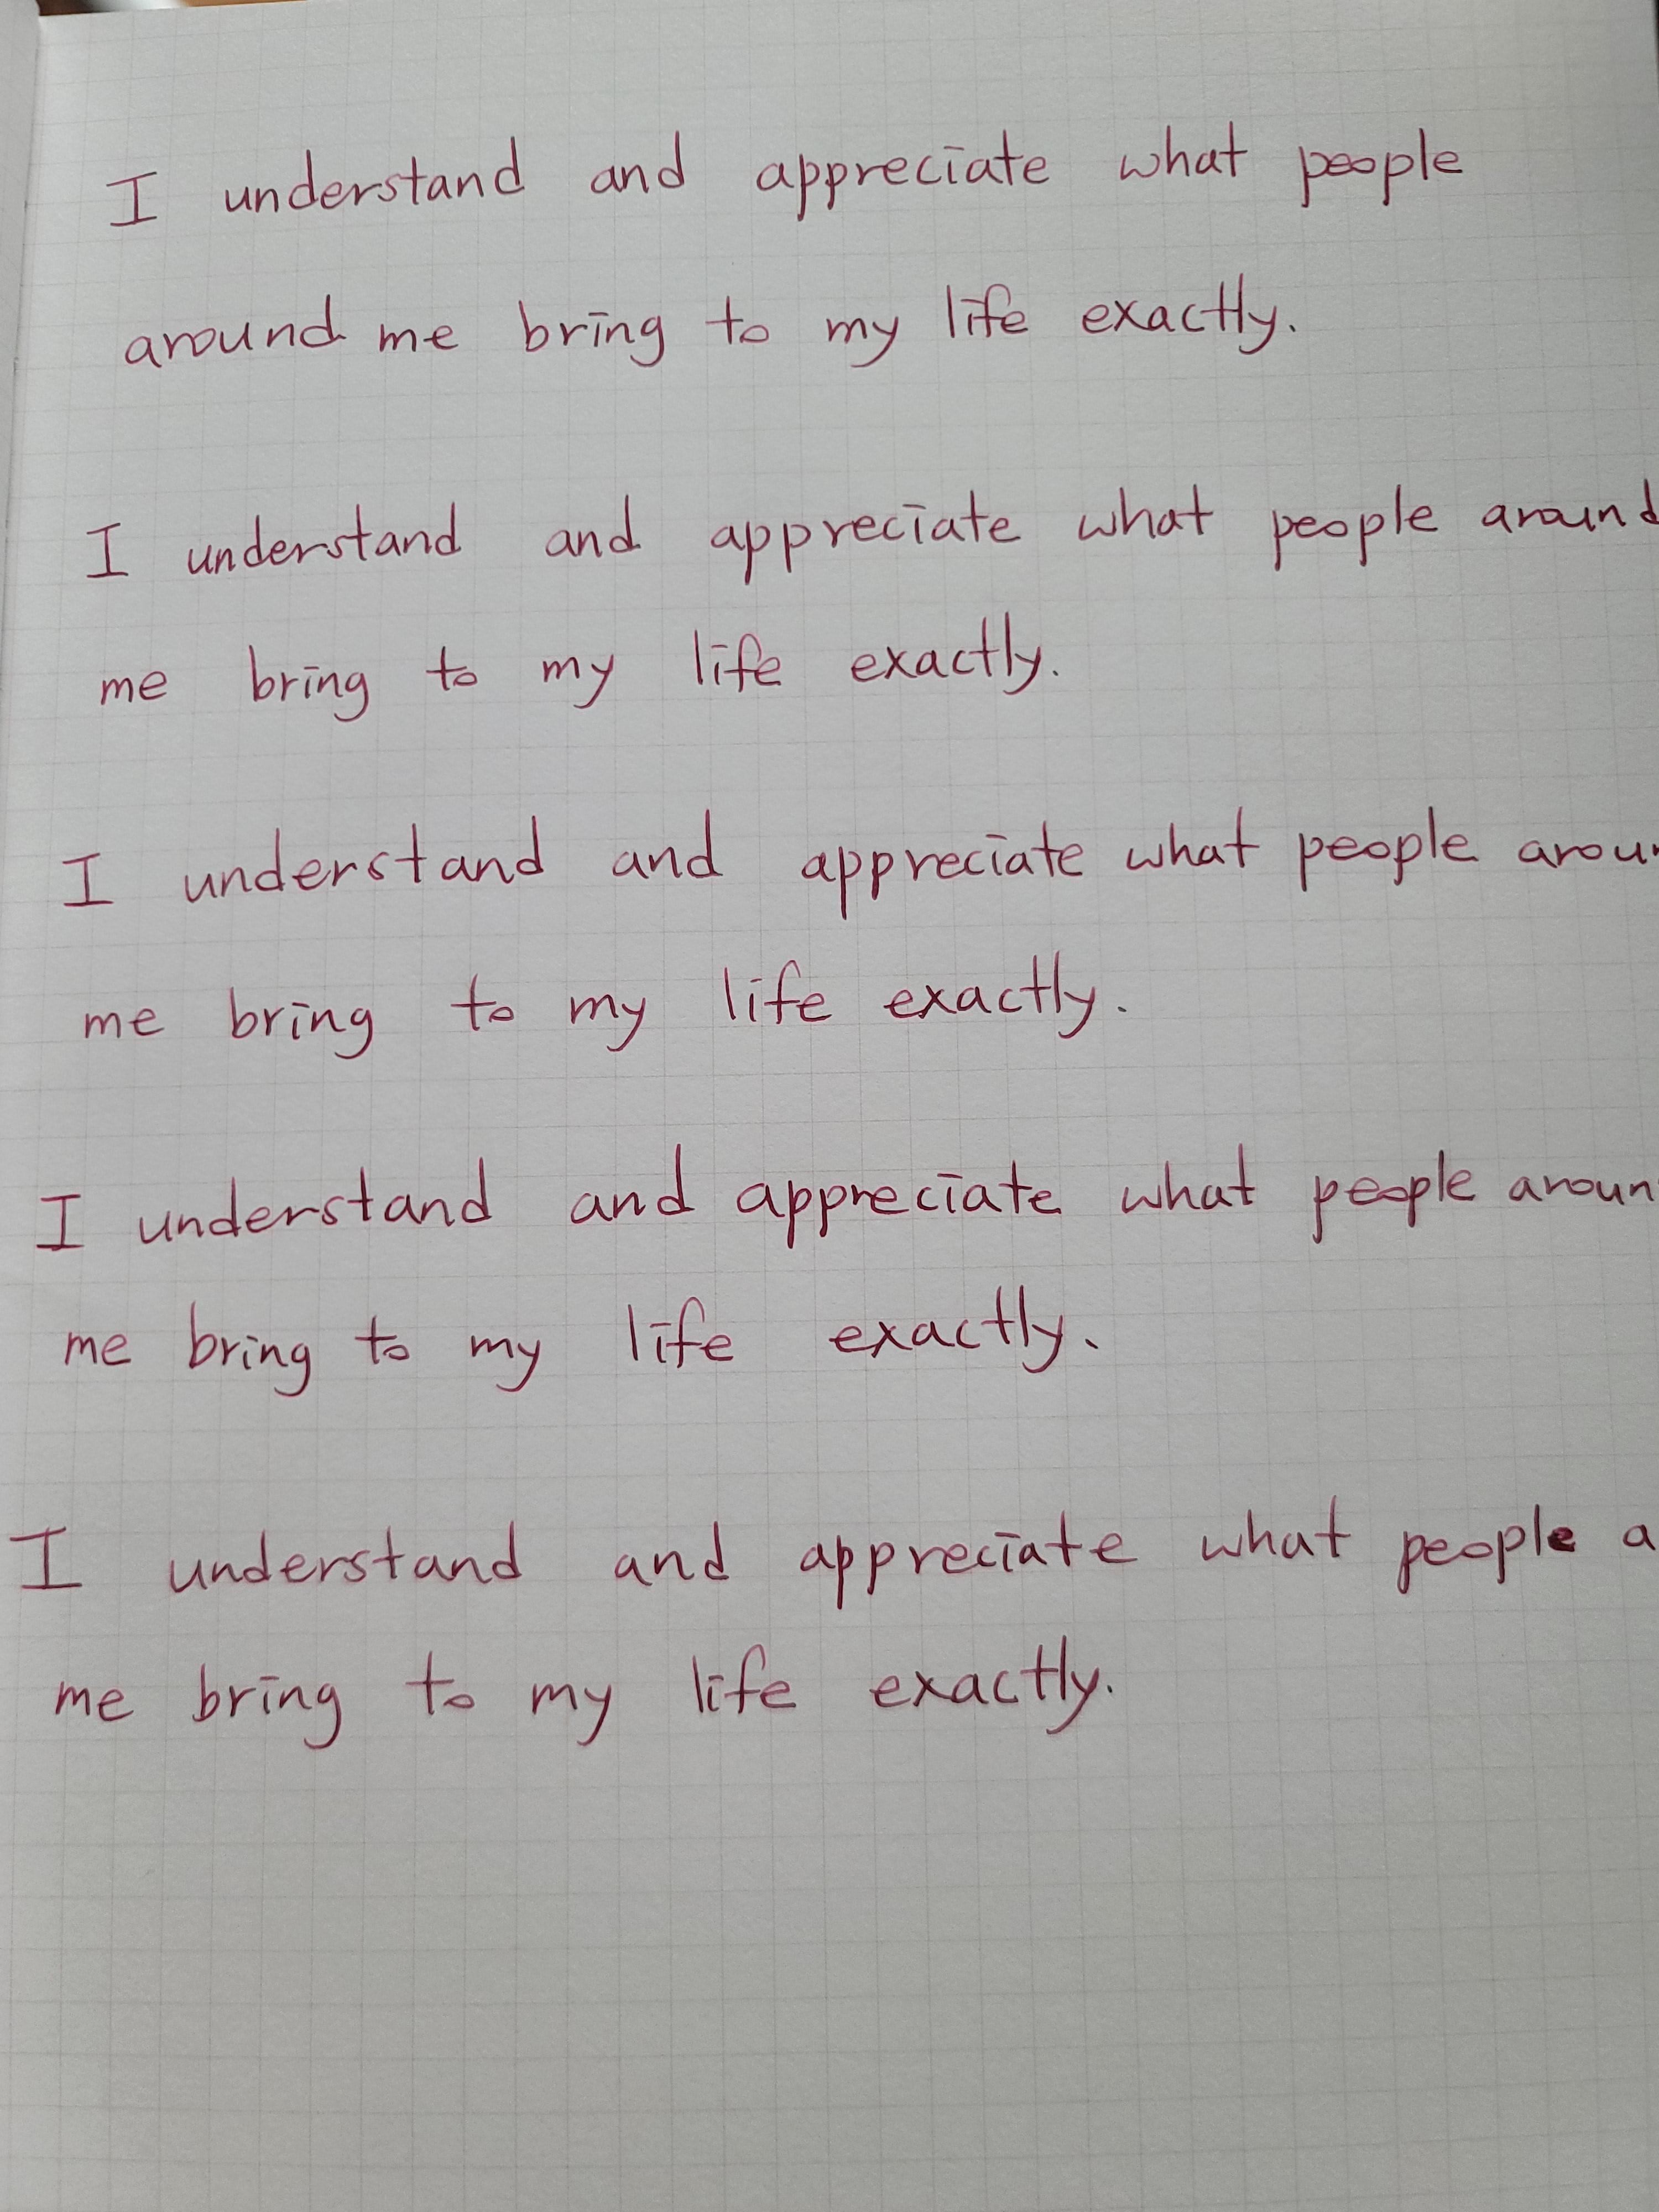 I understand and appreciate what people
around me bring to my life exactly.
I understand and appreciate what people around
me bring to my life exactly.
I understand and appreciate what people aroun
me bring to my life exactly.
I understand and appreciate what people aroun
me bring to my life exactly.
I understand and appreciate what people a
me bring to my life exactly.